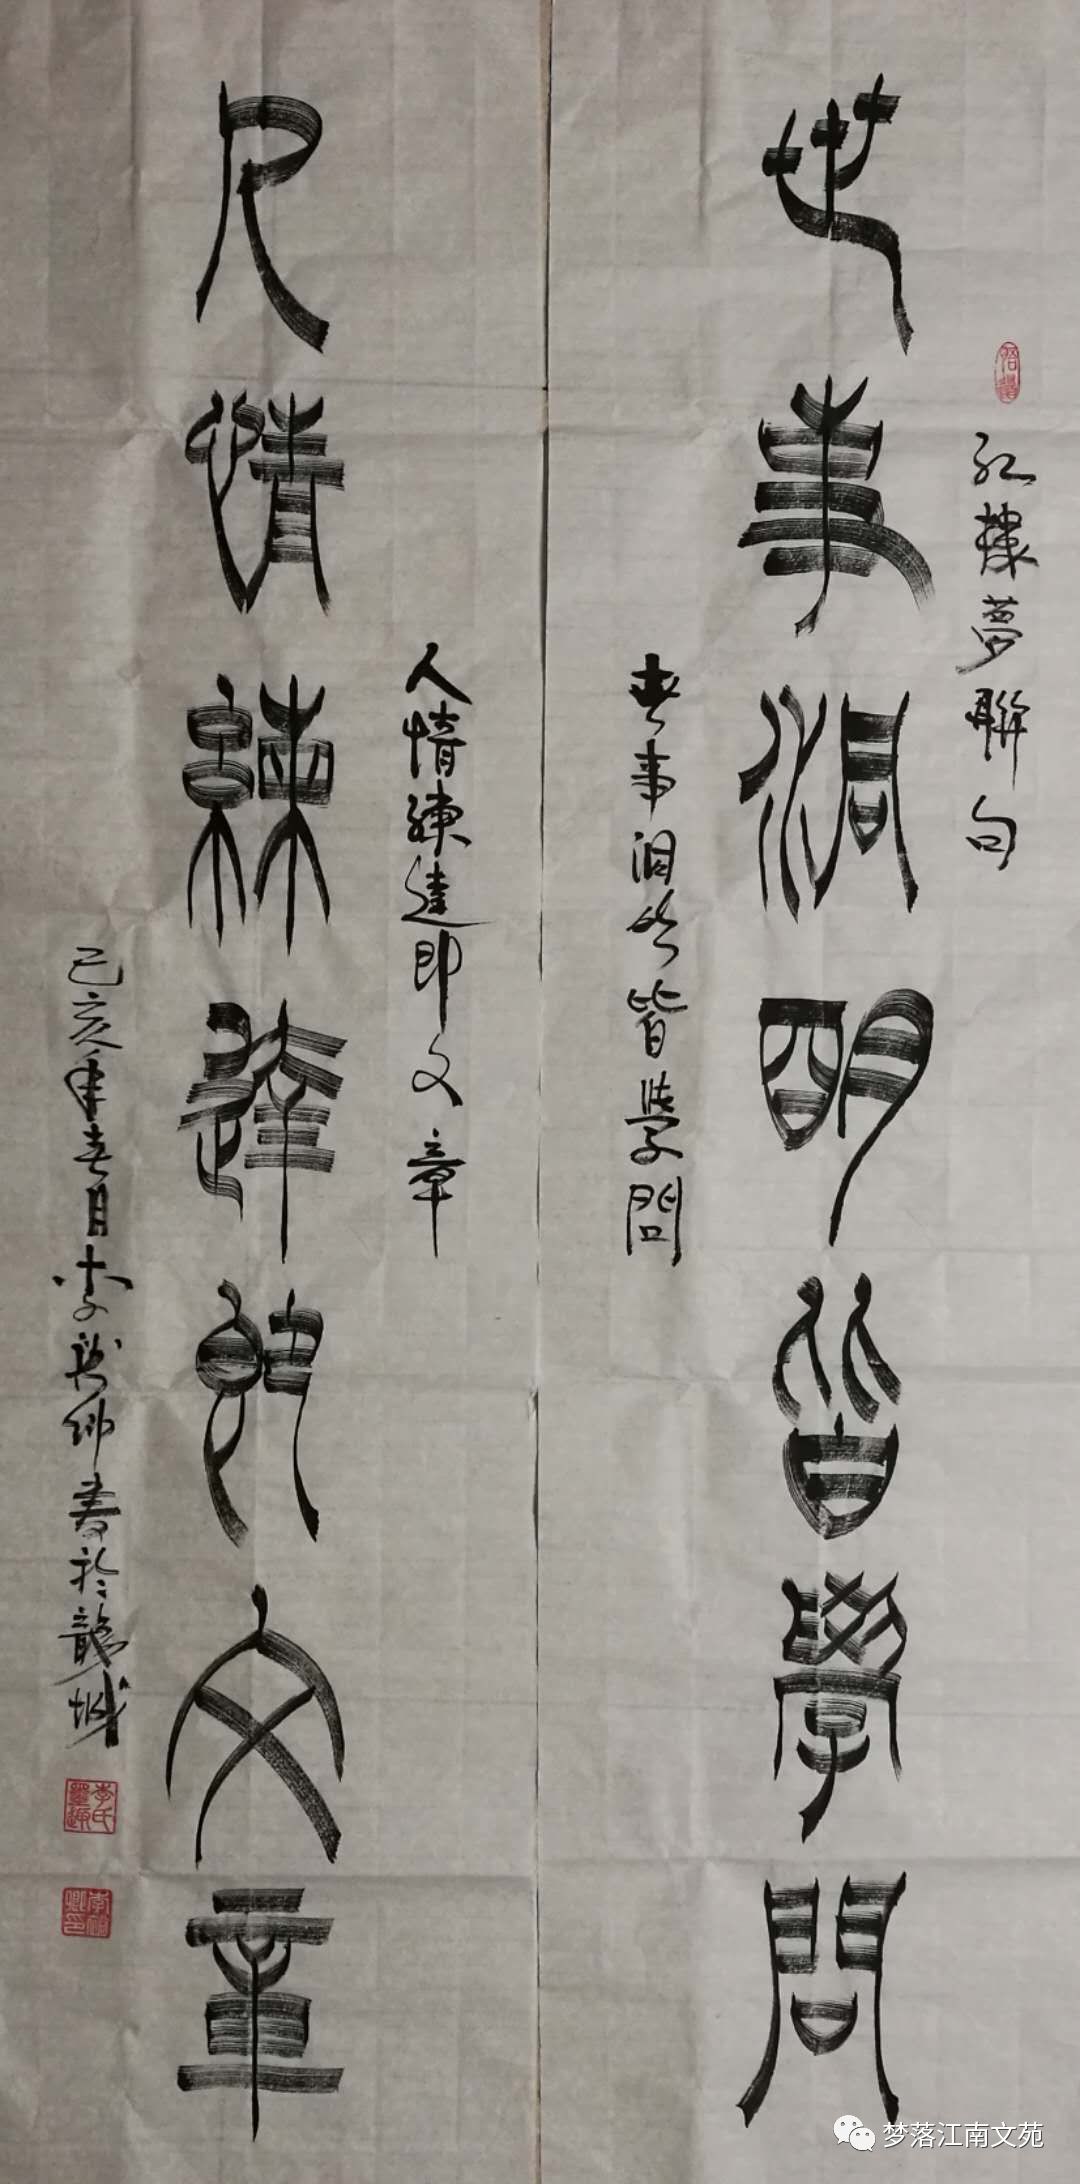 世事洞明皆學問
紅樓夢聯句
世事洞明皆學問
人情練達即文章
人情練達即文章
己亥年春月李興卿書於龍城
李氏
梦落江南文苑